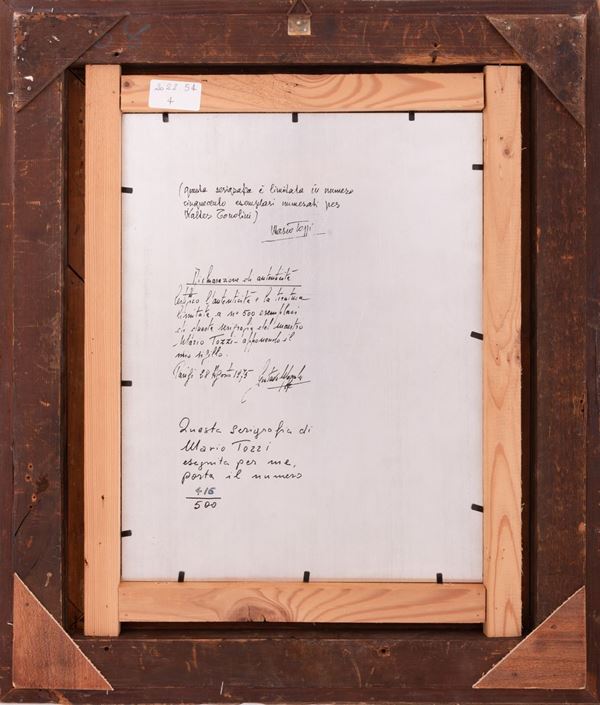 2022 54
4
(questa serigrafia è limitata in numero
cinquecento esemplari numerati per
Walter Tonolini)
Mario Tozzi
Dichiarazione di autenticità
l'autenticità e la tiratura
limitata a n° 500 esemplari
di questa serigrafia del maestro
Mario Tozzi - apponendo il
mio sigillo.
Parigi 28 Agosto 1975
Questa serigrafia di
Mario Tozzi
eseguita per me,
porta il numero
416
500